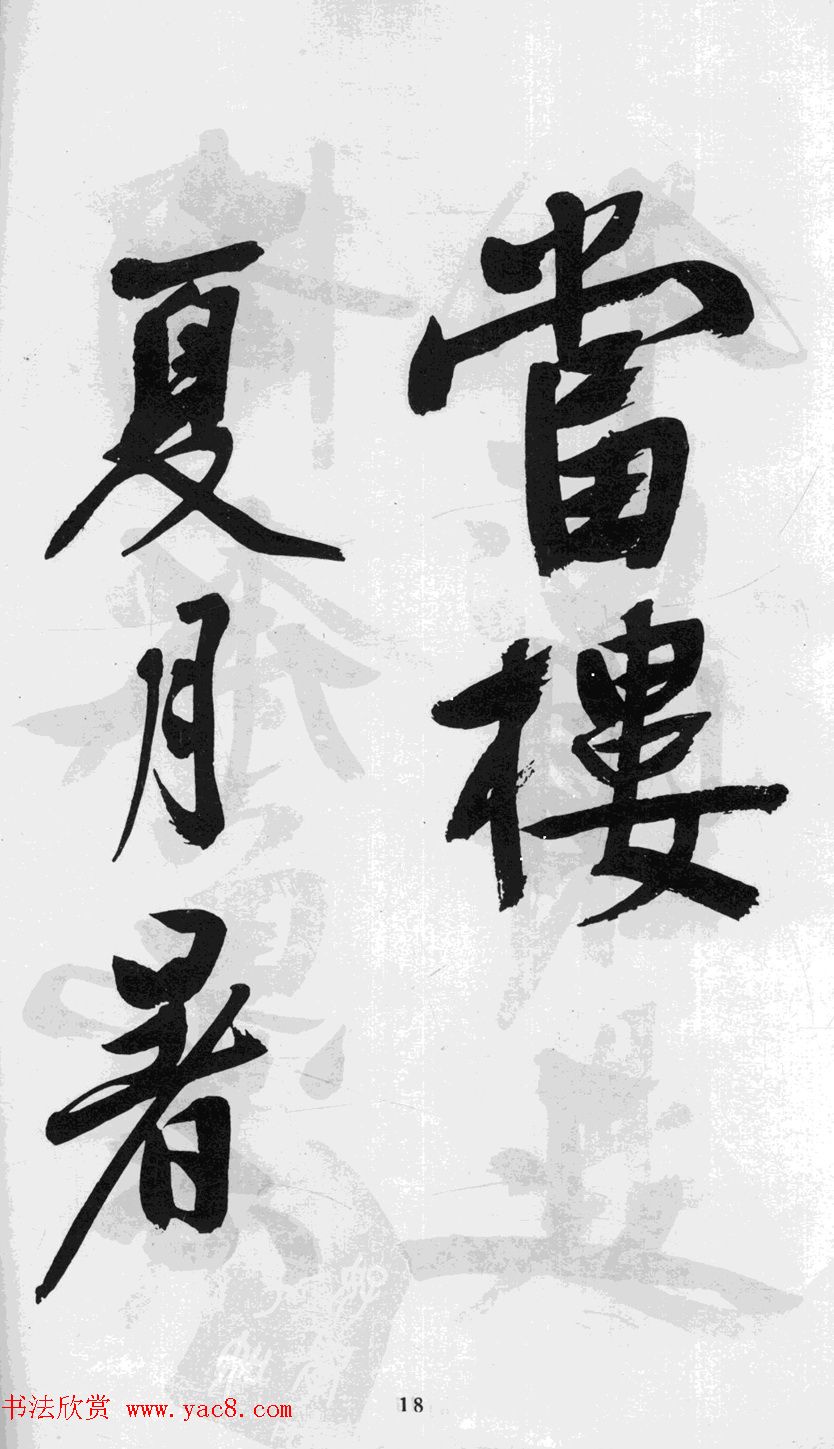 當樓
夏月暑
18
书法欣赏 www.yac8.com